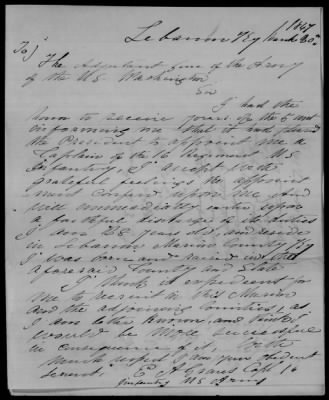 1847
Lebanon Ky March 30th
To
The Adjutant Gen of the Army
of the U.S. Washington
Sir
I had the
honor to receive yours of the 6 inst
informing me that it had pleased
the President to appoint me a
Captain of the 16 Regiment U.S.
Infantry, I accept with
grateful feelings the
and
will immediately enter upon
a faithful discharge of its duties
I am 28 years old, and reside
in Lebanon Marion County Ky
I was born and raised in the
aforesaid County and State
I think it expedient for
me to recruit in this Marion
and the adjoining Counties, as
I am better known, and think I
would be more successful
in consequence of it. With
much respect I am your obedient
servant E A Graves Capt 16
Infantry U.S. Army